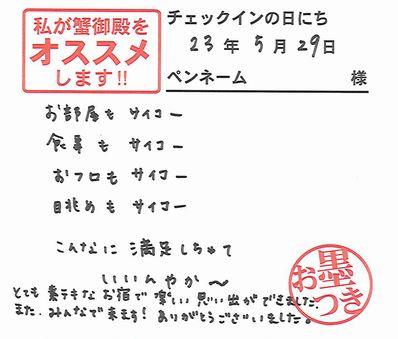 私が蟹御殿を
オススメ
します!!
チェックインの日にち
23年5月29日
ペンネーム 様
お部屋も サイコー
食事も サイコー
おフロも サイコー
眺めも サイコー
こんなに 満足しちゃて
いいんやか〜
とても 素テキな お宿で 楽しい 思い出ができました。
また、みんなで来ます! ありがとうございました。
お墨つき